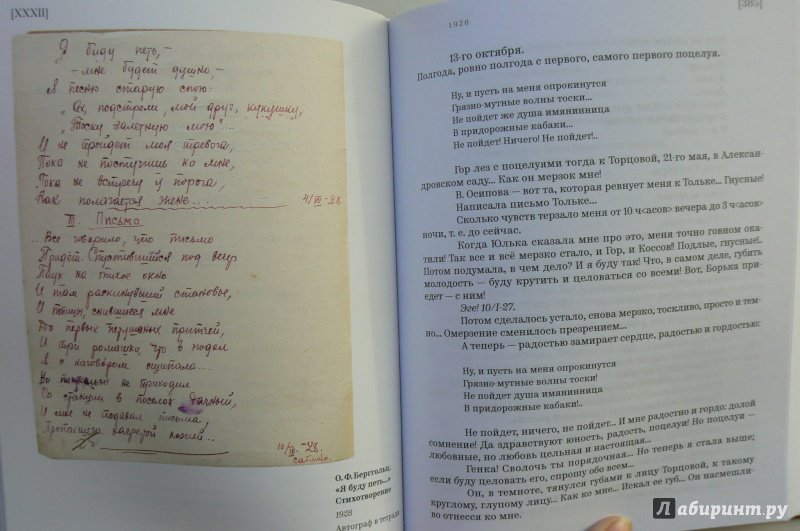 [XXXII]
Я буду петь,-
-мне будет душно,-
Я песню старую спою:
„Ах, подстрели, мой друг, кукушку,
„Тоску залетную мою"...
И не пройдет моя тревога,
Пока не постучишь ко мне,
Пока не встречу у порога,
Как полагается жене...
4/III-28.
III. Письмо
..Все говорило, что письмо
Придет. Спустившийся под вечер
Паук на тихое окно
И там раскинувший становье,
И птицы, снившиеся мне
До первых петушиных притчей,
И три ромашки, что в подол
Я с наговором щипала...
Но не приходил
Со станции в поселок дачный,
И мне не подавал письма,
кожей...
10/III-28.
О. Ф. Берггольц.
«Я буду петь...»
Стихотворение
1928
Автограф в тетради
1926
[385]
13-го октября.
Полгода, ровно полгода с первого, самого первого поцелуя.
Ну, и пусть на меня опрокинутся
Грязно-мутные волны тоски...
Не пойдет же душа имянинница
В придорожные кабаки...
Не пойдет! Ничего! Не пойдет!..
Гор лез с поцелуями тогда к Торцовой, 21-го мая, в Алексан-
дровском саду... Как он мерзок мне!
В. Осипова — вот та, которая ревнует меня к Тольке... Гнусные!
Написала письмо Тольке...
Сколько чувств терзало меня от 10 ч<асов> вечера до 3 ч<асов>
ночи, т. е. до сейчас.
Когда Юлька сказала мне про это, меня точно говном ока-
тили! Так все и всё мерзко стало, и Гор, и Коссов! Подлые, гнусные!..
Потом подумала, в чем дело? И я буду так! Что, в самом деле, губить
молодость — буду крутить и целоваться со всеми! Вот, Борька при-
едет — с ним!
Эге! 10/I-27.
Потом сделалось устало, снова мерзко, тоскливо, просто и тем-
но... Омерзение сменилось презреньем...
А теперь — радостью замирает сердце, радостью и гордостью:
Ну, и пусть на меня опрокинутся
Грязно-мутные волны тоски!
Не пойдет душа имянинница
В придорожные кабаки!..
Не пойдет, ничего, не пойдет... И мне радостно и гордо: долой
сомнение! Да здравствуют юность, радость, поцелуи! Но поцелуи —
любовные, но любовь цельная и настоящая...
Генка! Сволочь ты порядочная... Но теперь я стала выше;
если буду целовать его, спрошу обо всем...
Он, в темноте, тянулся губами к лицу Торцовой, к такому
круглому, глупому лицу... Как ко мне... Искал ее губ... Он насмешли-
во отнесся ко мне.
Лабиринт.ру